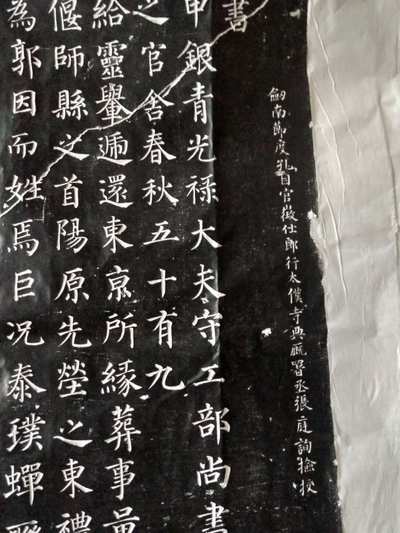 劔南節度孔目官徵仕郎行太僕寺典廐署丞張庭詢撿挍
書
申銀青光祿大夫守工部尚書
之官舍春秋五十有九
給靈轝遞還東亰所緣葬事量
偃師縣之首陽原先塋之東禮
為郭因而姓焉巨況泰璞蟬